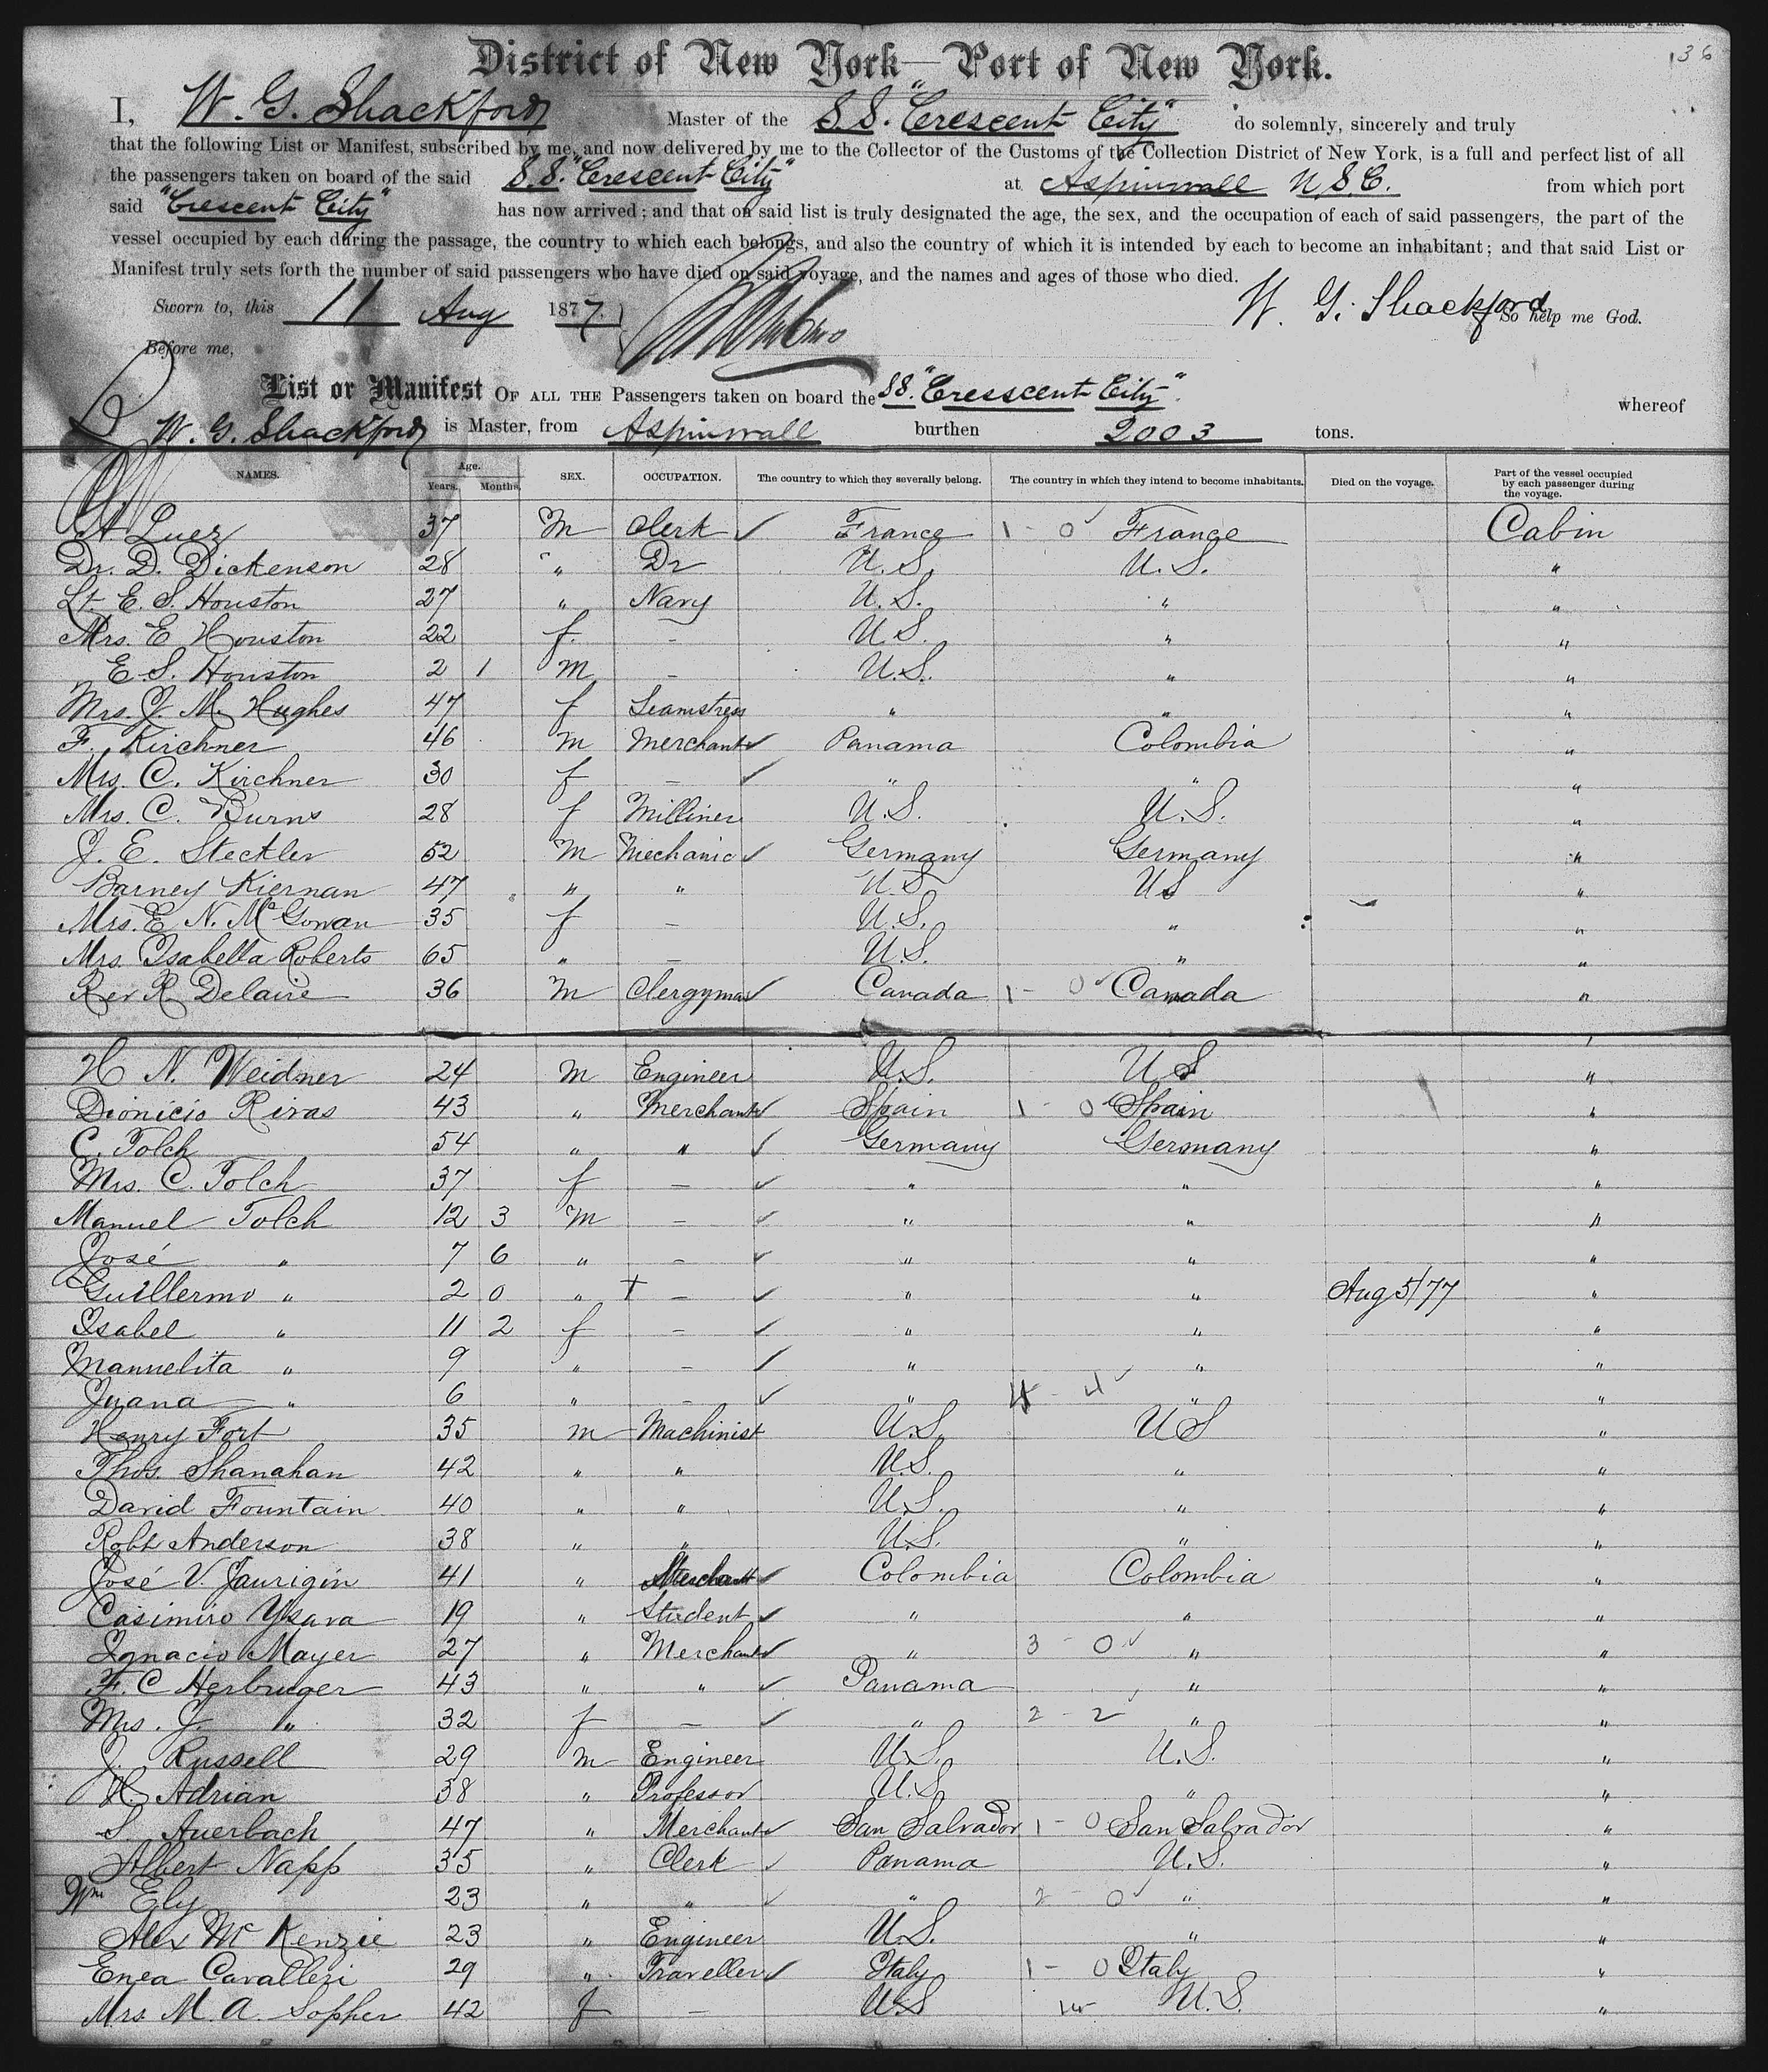 136
District of New York—Port of New York.
I, W. G. Shackford Master of the S.S. "Crescent City" do solemnly, sincerely and truly
that the following List or Manifest, subscribed by me, and now delivered by me to the Collector of the Customs of the Collection District of New York, is a full and perfect list of all
the passengers taken on board of the said S.S. "Crescent City" at Aspinwall U.S.C. from which port
said "Crescent City" has now arrived; and that on said list is truly designated the age, the sex, and the occupation of each of said passengers, the part of the
vessel occupied by each during the passage, the country to which each belongs, and also the country of which it is intended by each to become an inhabitant; and that said List or
Manifest truly sets forth the number of said passengers who have died on said voyage, and the names and ages of those who died.
Sworn to, this 11 Aug 1877. W. G. Shackford So help me God.
Before me,
List or Manifest OF ALL THE Passengers taken on board the SS. "Cresscent City" whereof
W. G. Shackford is Master, from Aspinwall burthen 2003 tons.
NAMES. Age. Years. Months. SEX. OCCUPATION. The country to which they severally belong. The country in which they intend to become inhabitants. Died on the voyage. Part of the vessel occupied by each passenger during the voyage.
A Luez 37 M Clerk ✓ France 1 - 0 ✓ France Cabin
Dr. D. Dickenson 28 " Dr U.S. U.S. "
Lt. E. S. Houston 27 " Navy U.S. " "
Mrs. E Houston 22 f. - U.S. " "
E. S. Houston 2 1 M - U.S. " "
Mrs. J. M. Hughes 47 f Seamstress " " "
F. Kirchner 46 m Merchant ✓ Panama Colombia "
Mrs. C. Kirchner 30 f - ✓ " " "
Mrs. C. Burns 28 f Milliner U.S. U.S. "
J. E. Steckler 52 M Mechanic ✓ Germany Germany "
Barney Kiernan 47 " " U.S. US "
Mrs. E. N. McGowan 35 f - U.S. " "
Mrs. Isabella Roberts 65 " - U.S. " "
Rev R Delaire 36 M Clergyman ✓ Canada 1 - 0 ✓ Canada "
H N. Weidner 24 m Engineer U.S. US "
Dionicio Rivas 43 " Merchant ✓ Spain 1 - 0 ✓ Spain "
C. Tolch 54 " " ✓ Germany Germany "
Mrs. C. Tolch 37 f - ✓ " " "
Manuel Tolch 12 3 M - ✓ " " "
José " 7 6 " - ✓ " " "
Guillermo " 2 0 " + - ✓ " " Aug 5/77 "
Isabel " 11 2 f - ✓ " " "
Mannuelita " 9 " - ✓ " " "
Juana " 6 " - ✓ " 4 - 4 ✓ " "
Henry Fort 35 m Machinist U.S. US "
Thos. Shanahan 42 " " U.S. " "
David Fountain 40 " " U.S. " "
Robt Anderson 38 " " U.S. " "
José V. Jaurigin 41 " Merchant ✓ Colombia Colombia "
Casimiro Ysava 19 " Student ✓ " " "
Ignacio Mayer 27 " Merchant ✓ " 3 - 0 ✓ " "
F. C Herbruger 43 " " ✓ Panama " "
Mrs. J. " 32 f - ✓ " 2 - 2 ✓ " "
J. Russell 29 m Engineer U.S. U.S. "
H. Adrian 38 " Professor U.S. " "
S. Auerbach 47 " Merchant ✓ San Salvador 1 - 0 San Salvador "
Albert Napp 35 " Clerk ✓ Panama U.S. "
Wm Ely 23 " " ✓ " 2 - 0 ✓ " "
Alex McKenzie 23 " Engineer U.S. " "
Enea Cavalleri 29 " Traveller ✓ Italy 1 - 0 Italy "
Mrs. M. A. Sopher 42 f - U.S U.S. "